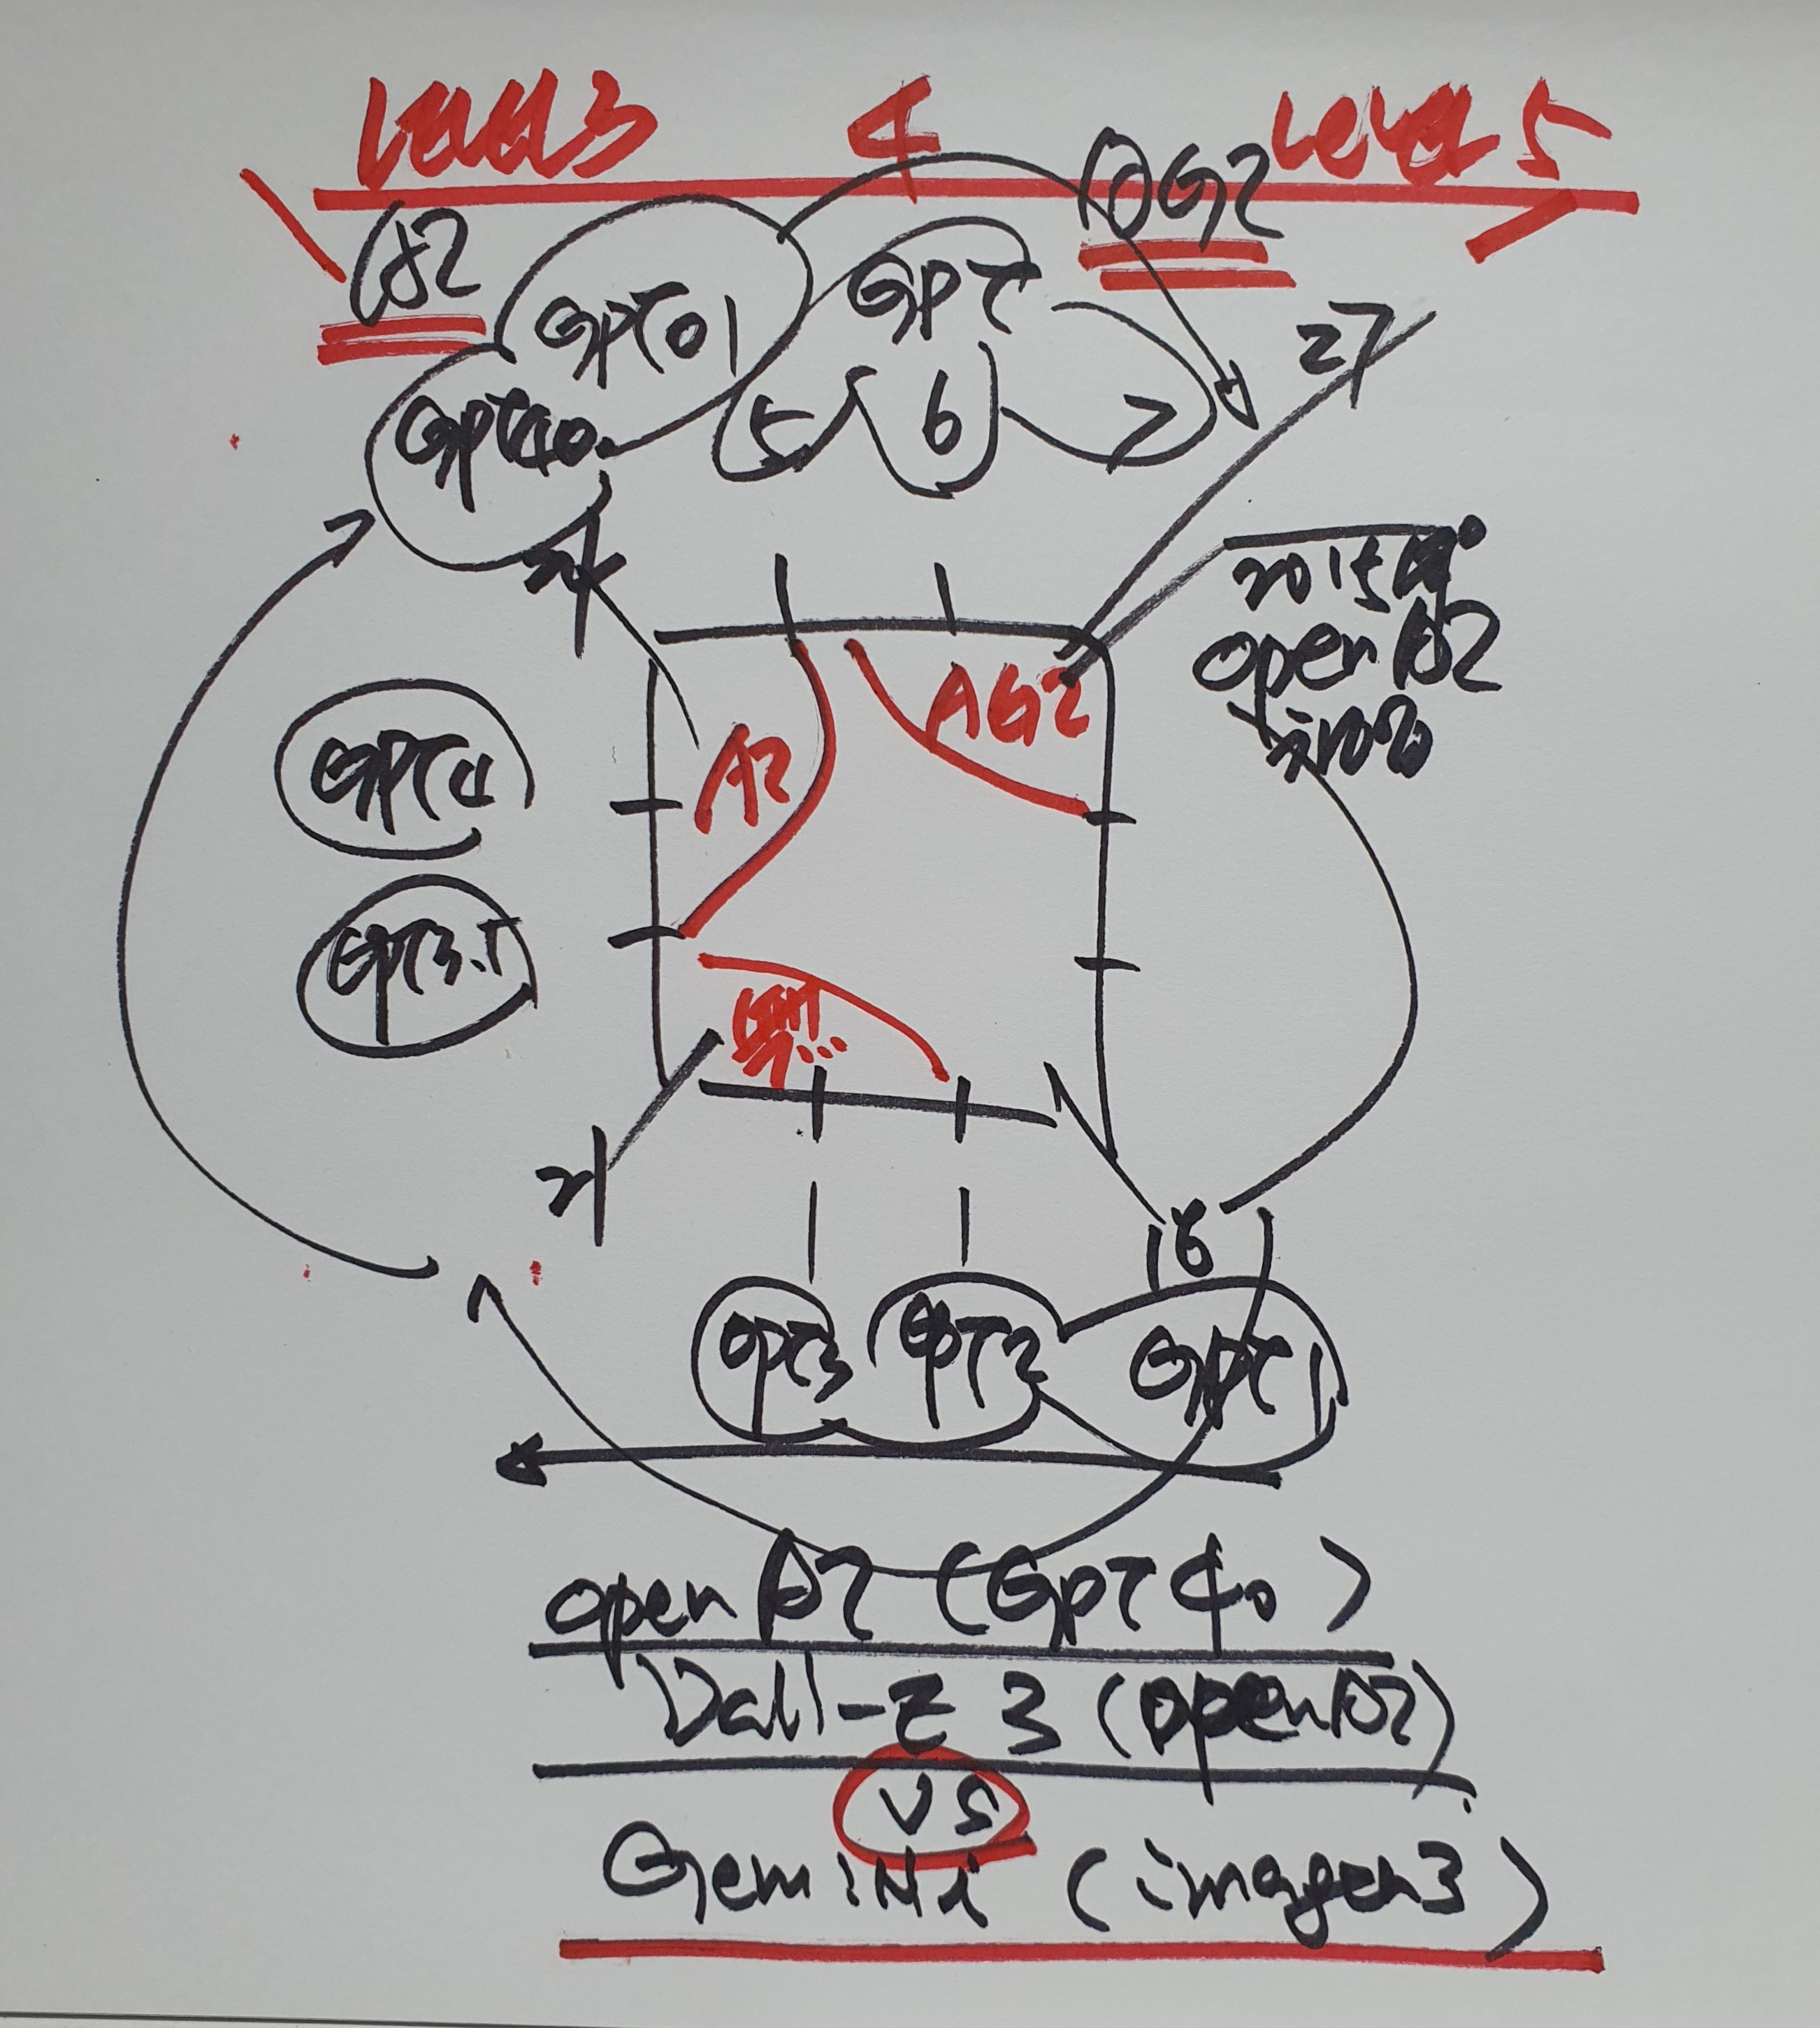 Level 3 4 Level 5
AI AGI
GPT o1 GPT
GPT4o 5 6 7
27
24
2015년
open AI
AGI
AI
GPT4
GPT3.5
21
18
GPT3 GPT2 GPT1
open AI (GPT 4o)
Dall-E 3 (open AI)
VS
GemiNi (imagen3)